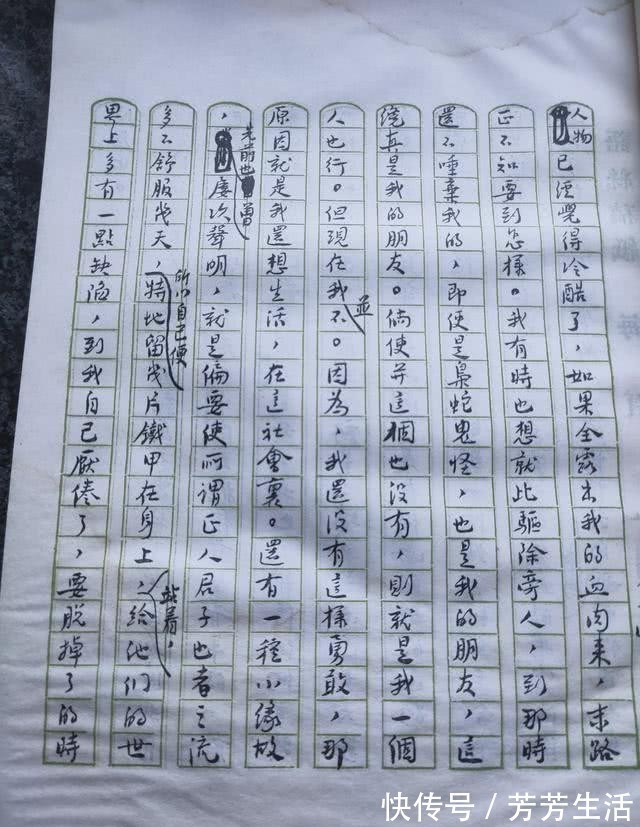 人物已經覺得冷酷了，如果全露出我的血肉來，末路
正不知要到怎樣。我有時也想就此驅除旁人，到那時
還不唾棄我的，即便是梟蛇鬼怪，也是我的朋友，這
纔真是我的朋友。倘使并這個也沒有，則就是我一個
人也行。但現在我並不。因為，我還沒有這樣勇敢，那
原因就是我還想生活，在這社會裏。還有一種小緣故
，先前也曾屢次聲明，就是偏要使所謂正人君子也者之流
多不舒服幾天，所以自己便特地留幾片鐵甲在身上，站着，給他們的世
界上多有一點缺陷，到我自己厭倦了，要脫掉了的時
快传号／芳芳生活